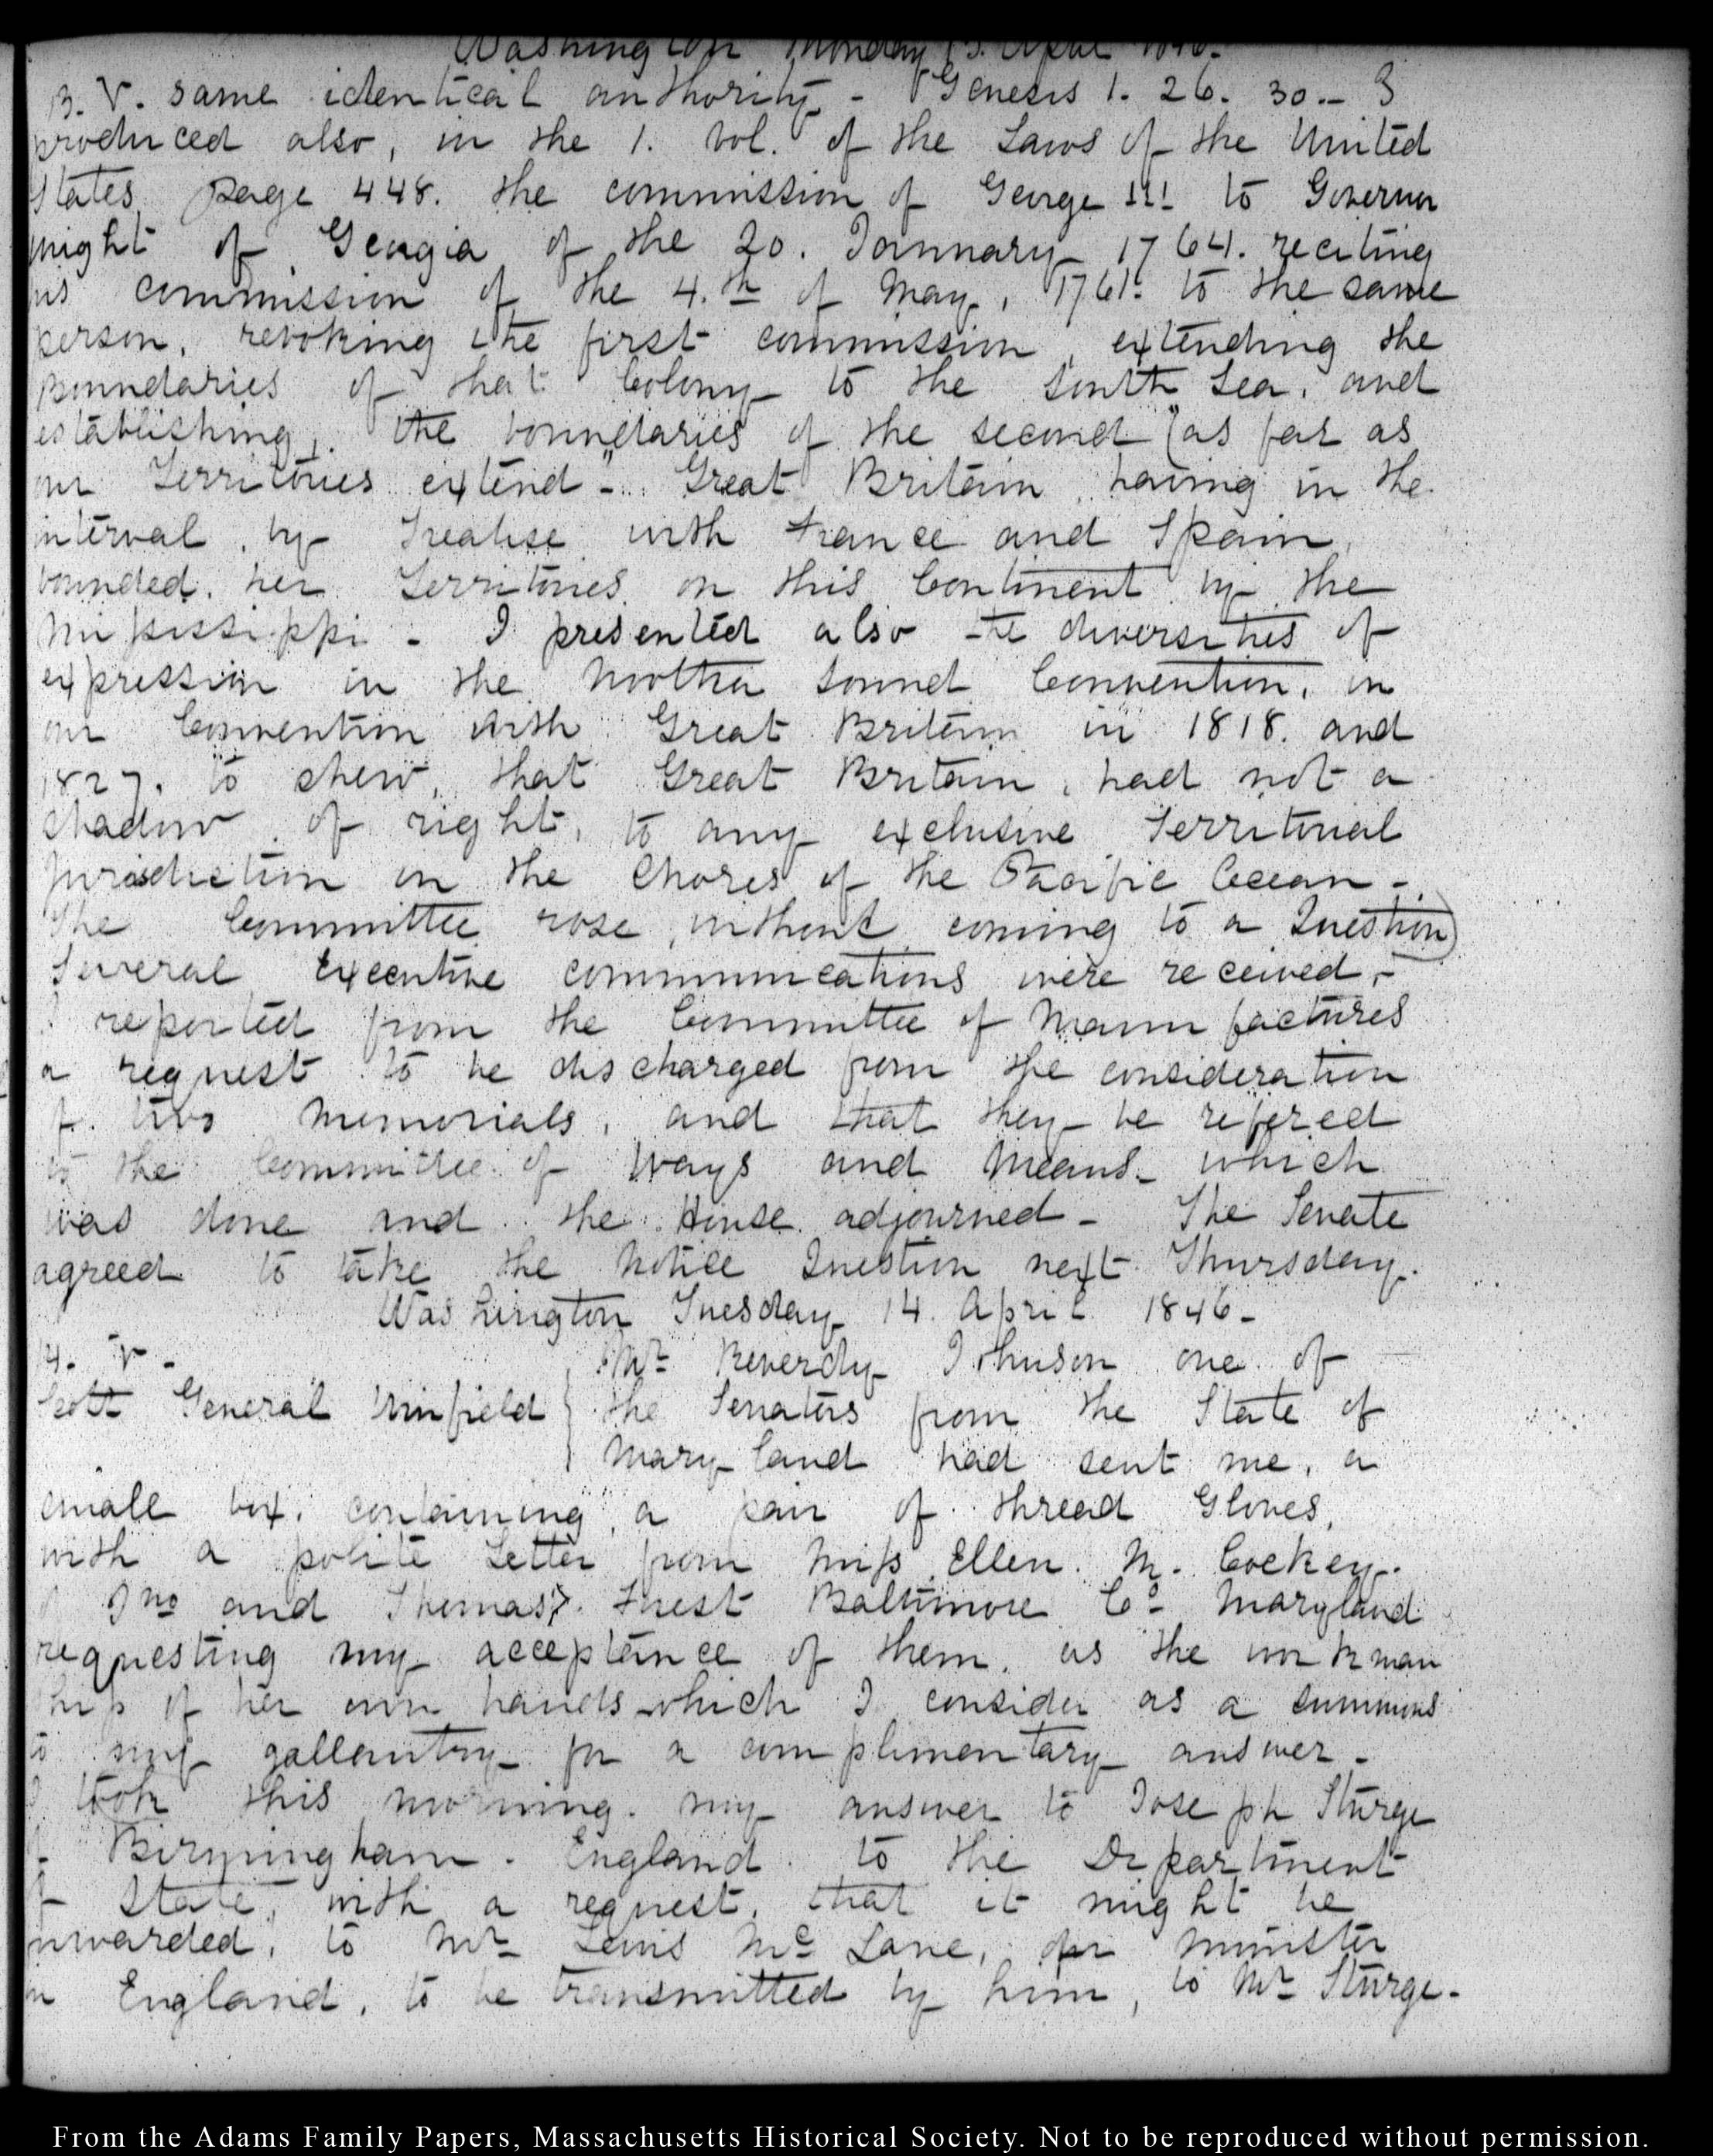 Washington Monday 13. April 1846.
B. V. same identical authority - Genesis 1. 26. 30. - I
produced also, in the 1. vol. of the Laws of the United
States, page 448. the commission of George III to Governor
Wright of Georgia of the 20. January 1764. reciting
his commission of the 4.th of May, 1761. to the same
person, revoking the first commission, extending the
Boundaries of that Colony to the South Sea, and
establishing, the boundaries of the second "as far as
our Territories extend" - Great Britain, having in the
interval, by Treatise with France and Spain,
bounded, her Territories on this Continent by the
Missisippi - I presented also the diversities of
expression in the Nootka Sound Convention, in
our Convention with Great Britain in 1818. and
1827. to shew, that Great Britain, had not a
shadow of right, to any exclusive Territorial
Jurisdiction on the Shores of the Pacific Ocean -
The Committee rose, without coming to a Question
Several Executive communications were received, -
I reported from the Committee of Manufactures
a request to be discharged from the consideration
of two Memorials, and that they be refered
to the Committee of Ways and Means - which
was done and the House adjourned - The Senate
agreed to take the Notice Question next Thursday.
Washington Tuesday 14. April 1846 -
4. V -
Scott General Winfield } Mr Reverdy Johnson one of
the Senators from the State of
Maryland had sent me, a
small box, containing, a pair of thread Gloves,
with a polite Letter from Miss Ellen. M. Cockey.
of Jno and Thomas. Forest Baltimore Co. Maryland
requesting my acceptance of them, as the workman
ship of her own hands which I consider as a summons
to my gallantry for a complimentary answer -
I took this morning. my answer to Joseph Sturge
of Birmingham. England. to the Department
of State, with a request, that it might be
forwarded, to Mr Lewis Mc Lane, our Minister
in England, to be transmitted by him, to Mr Sturge -
From the Adams Family Papers, Massachusetts Historical Society. Not to be reproduced without permission.